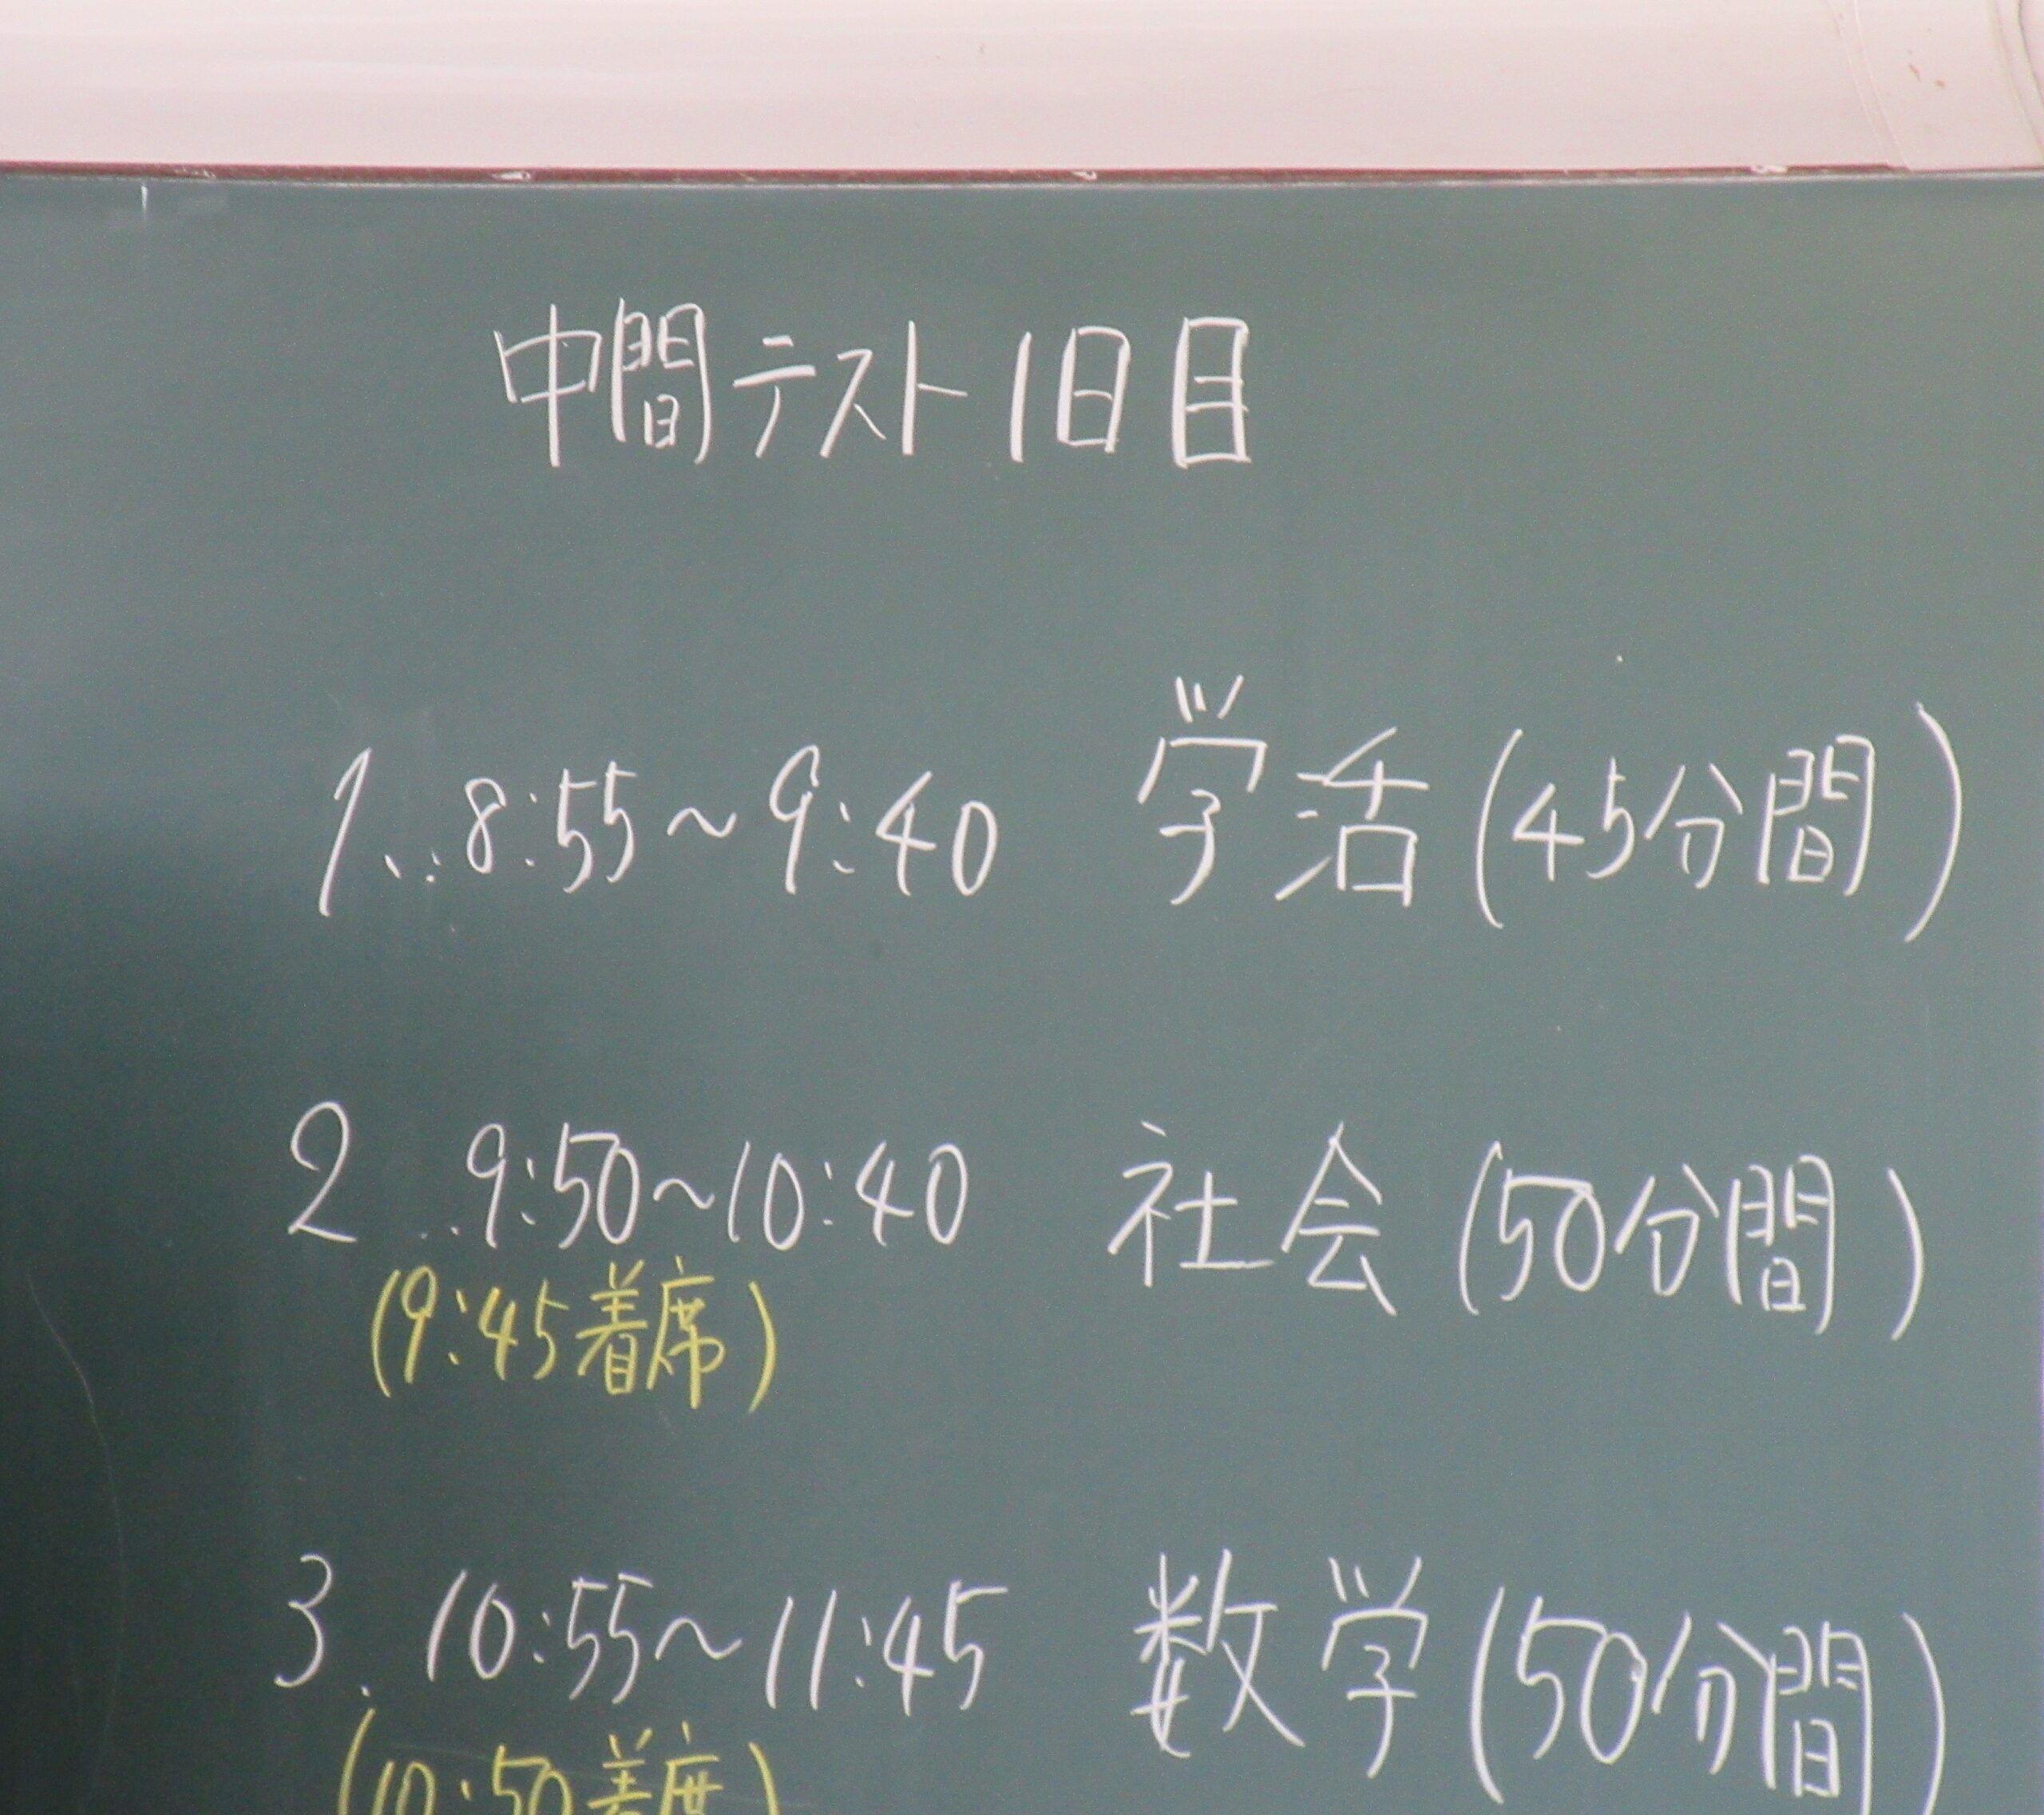 中間テスト1日目
1...8:55～9:40 学活(45分間)
2..9:50～10:40 社会(50分間)
(9:45着席)
3.10:55～11:45 数学(50分間)
(10:50着席)